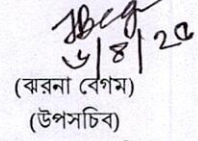 ৬/৪/২৫
(ঝরনা বেগম)
(উপসচিব)